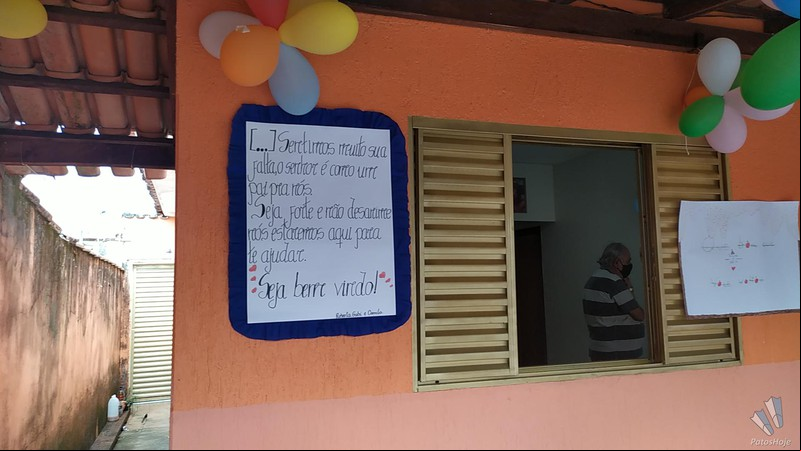 [...] Sentimos muito sua
falta, o senhor é como um
pai pra nós.
Seja forte e não desanime
nós estaremos aqui para
te ajudar.
Seja bem vindo!
PatosHoje